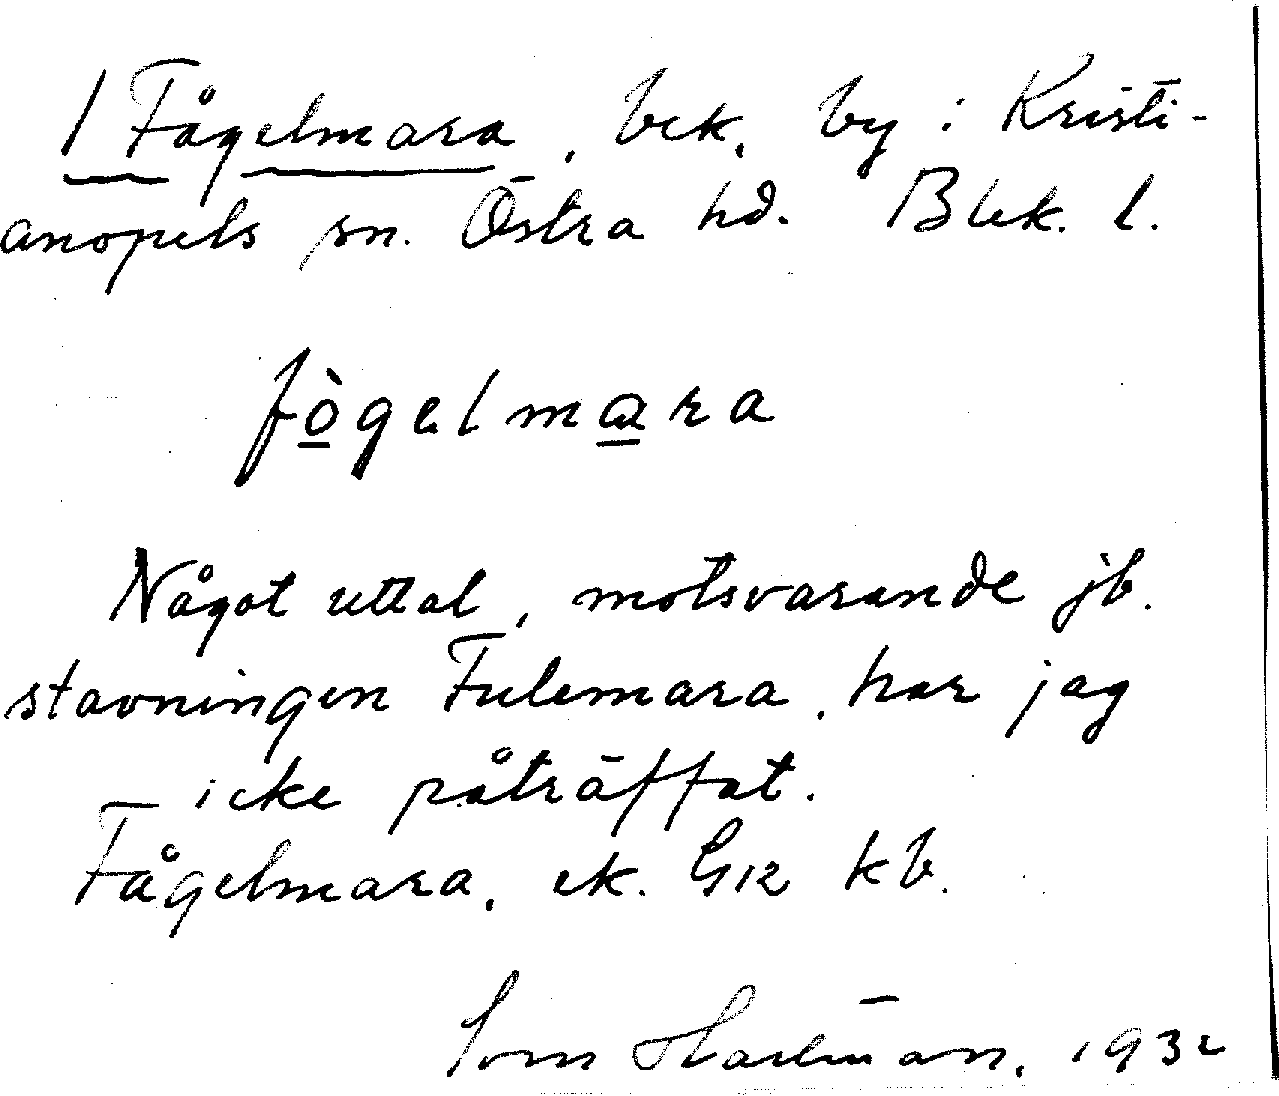 1 Fågelmara, bek. by i Kristi-
anopels sn. Östra hd. Blek. l.
fògelmara
Något uttal, motsvarande jb.
stavningen Fulemara, har jag
icke påträffat.
Fågelmara, ek. G12 kb.
1932